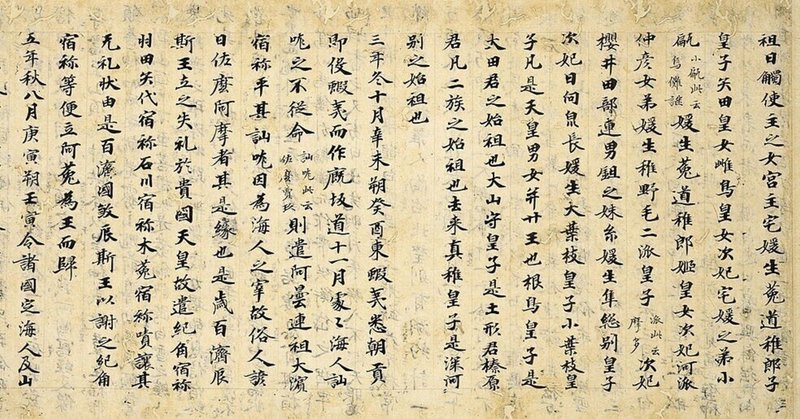 祖日觸使主之女宮主宅媛生菟道稚郎子
皇子矢田皇女雌鳥皇女次妃宅媛之弟小
甂小甂此云烏儺謎媛生菟道稚郎姬皇女次妃河派
仲彦女弟媛生稚野毛二派皇子派此云摩多次妃
櫻井田部連男鉏之妹糸媛生隼総別皇子
次妃日向泉長媛生大葉枝皇子小葉枝皇
子凡是天皇男女并廿王也根鳥皇子是
大田君之始祖也大山守皇子是土形君榛原
君凡二族之始祖也去来真稚皇子是深河
別之始祖也
三年冬十月辛未朔癸酉東蝦夷悉朝貢
即役蝦夷而作厩坂道十一月處々海人訕
哤之不従命訕哤此云佐麼賣玖則遣阿曇連祖大濱
宿祢平其訕哤因為海人之宰故俗人諺
曰佐麼阿摩者其是縁也是歳百濟辰
斯王立之失礼於貴國天皇故遣紀角宿祢
羽田矢代宿祢石川宿祢木菟宿祢嘖讓其
无礼狀由是百濟國殺辰斯王以謝之紀角
宿祢等便立阿菟為王而歸
五年秋八月庚寅朔壬寅令諸國定海人及山